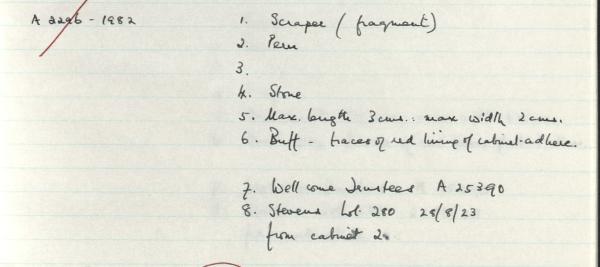 A 3296 - 1982 1. Scraper (fragment)
2. Peru
3.
4. Stone
5. Max. length 3 cms.: max width 2 cms.
6. Buff - traces of red lining of cabinet adhere.
7. Wellcome Trustees A 25390
8. Stevens Lot. 280 28/8/23
from cabinet 2